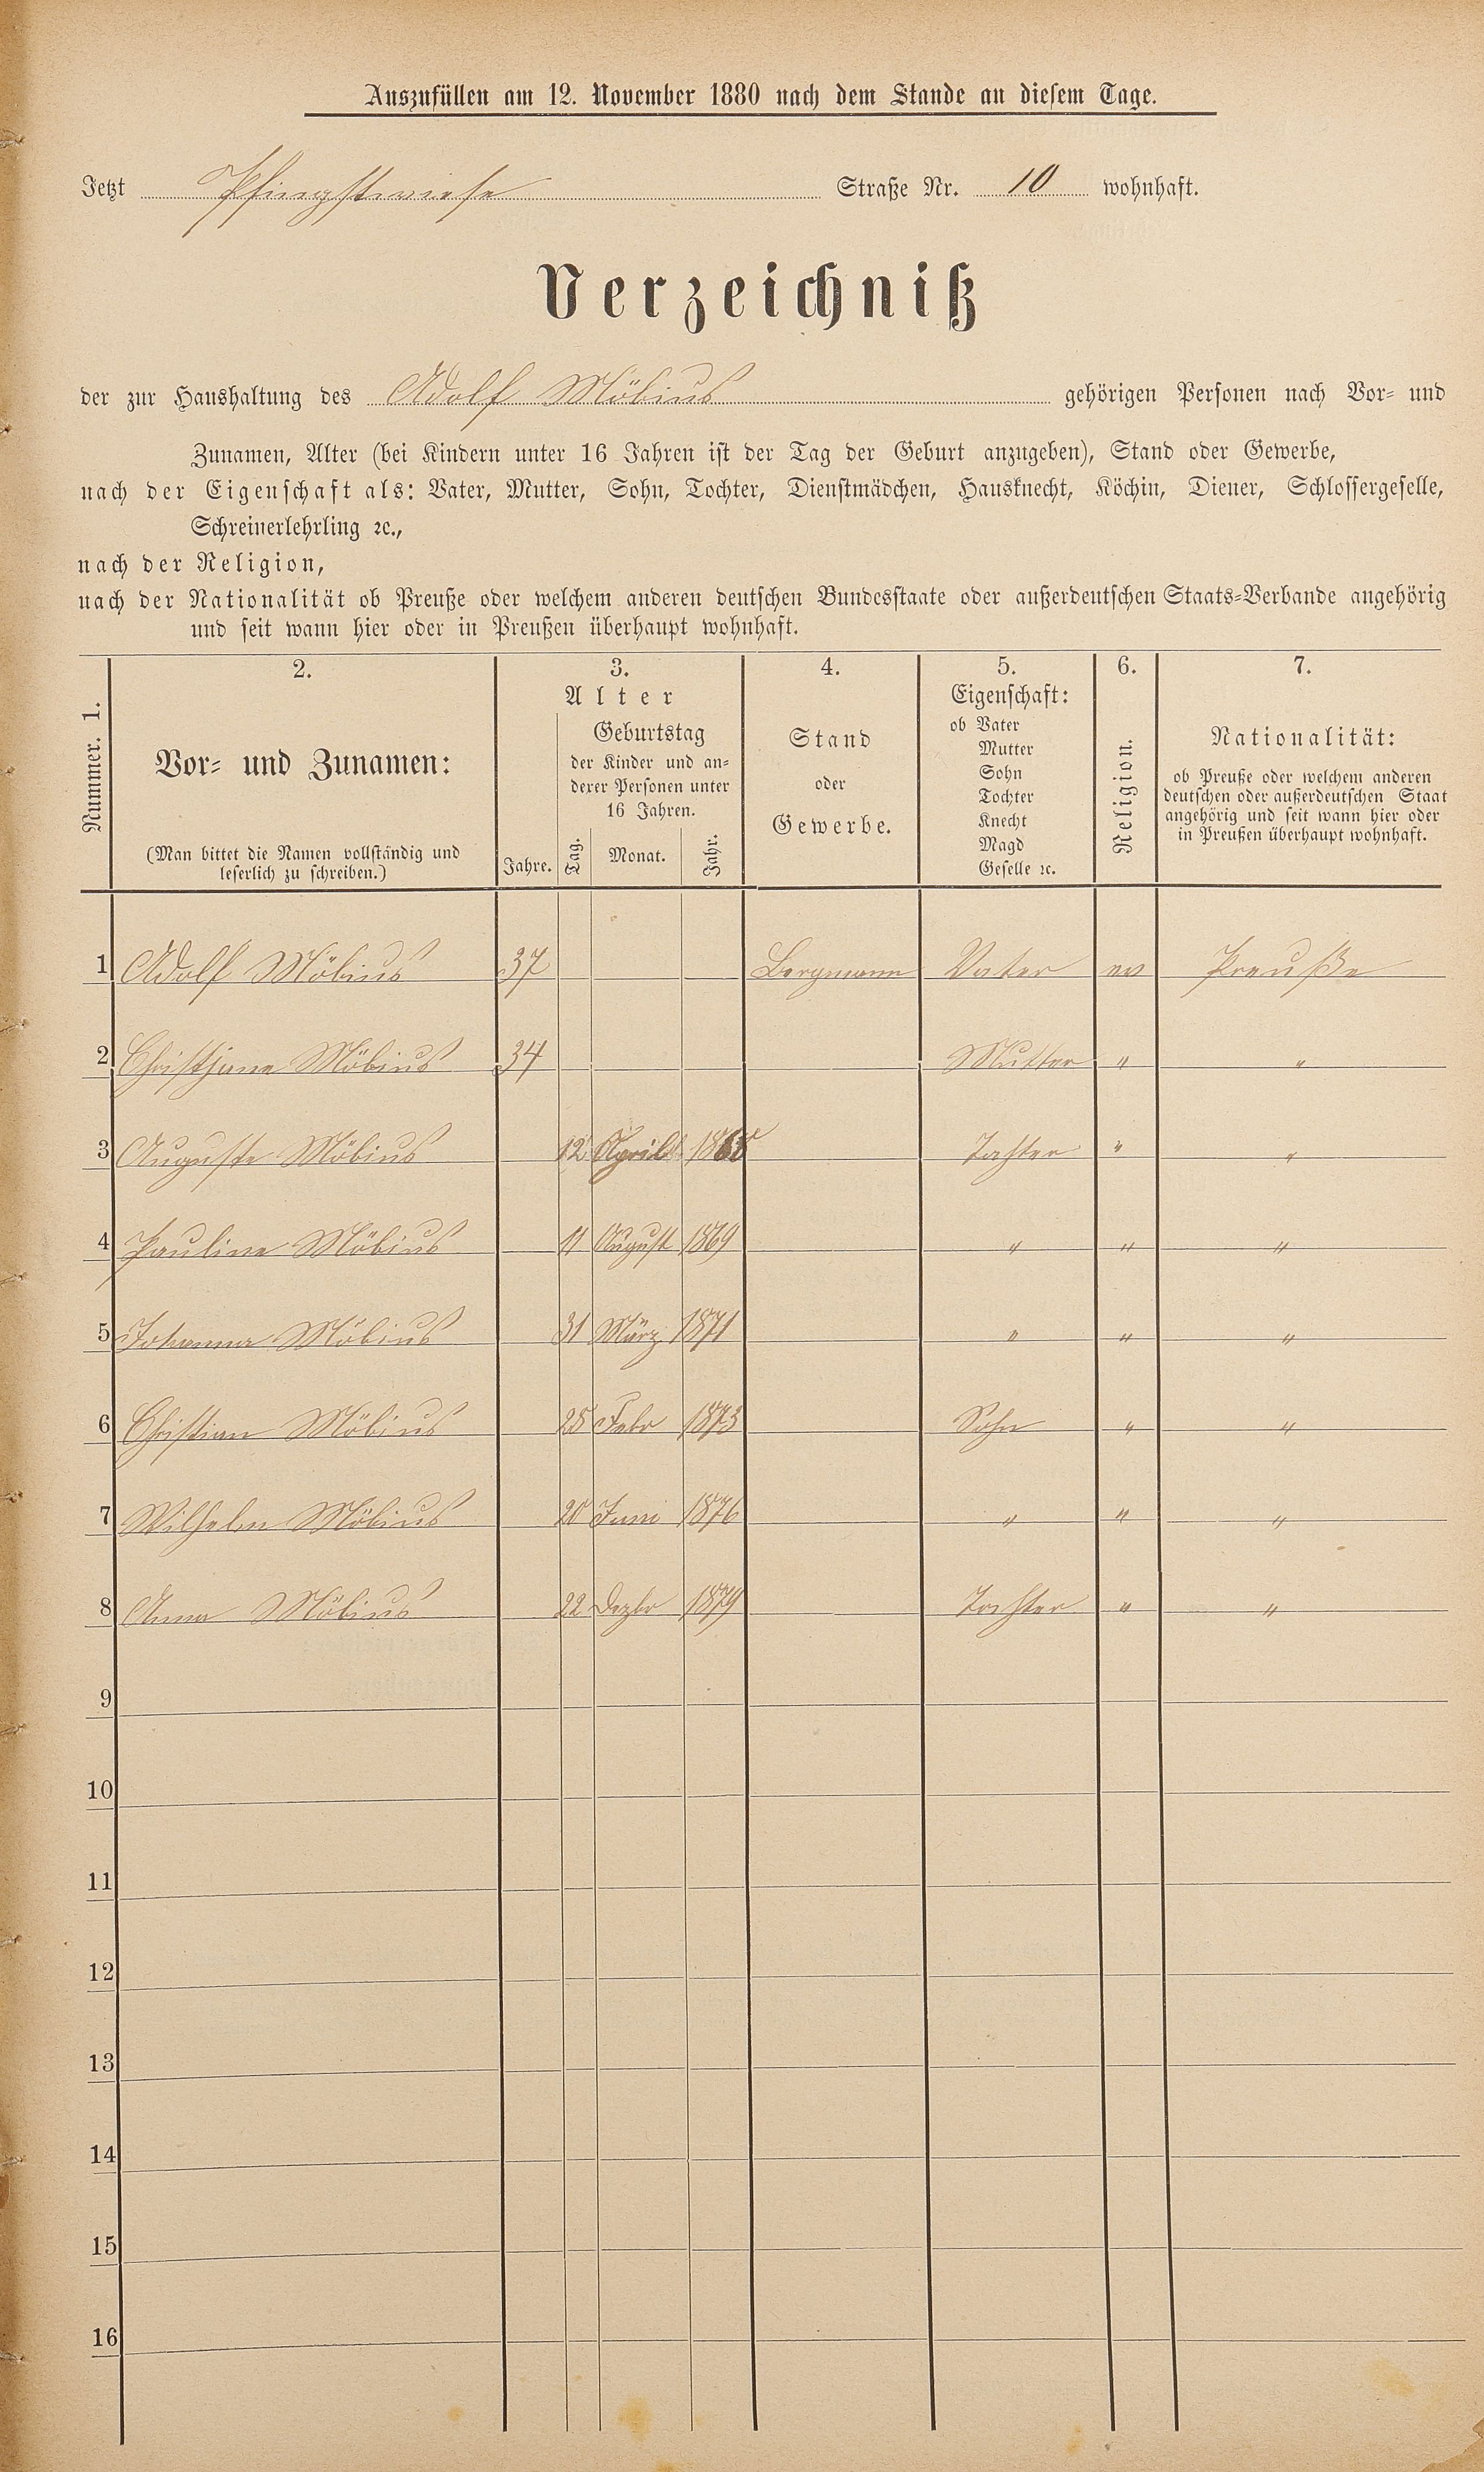 Auszufüllen am 12. November 1880 nach dem Stande an diesem Tage.
Jetzt Pfingstwiese Straße Nr. 10 wohnhaft.
Verzeichniß
der zur Haushaltung des Adolf Möbius gehörigen Personen nach Vor- und
Zunamen, Alter (bei Kindern unter 16 Jahren ist der Tag der Geburt anzugeben), Stand oder Gewerbe,
nach der Eigenschaft als: Vater, Mutter, Sohn, Tochter, Dienstmädchen, Hausknecht, Köchin, Diener, Schlossergeselle,
Schreinerlehrling ꝛc.,
nach der Religion,
nach der Nationalität ob Preuße oder welchem anderen deutschen Bundesstaate oder außerdeutschen Staats-Verbande angehörig
und seit wann hier oder in Preußen überhaupt wohnhaft.
Nummer. 1.
2.
Vor- und Zunamen:
(Man bittet die Namen vollständig und
leserlich zu schreiben.)
3.
Alter
Jahre.
Geburtstag
der Kinder und an-
derer Personen unter
16 Jahren.
Tag. Monat. Jahr.
4.
Stand
oder
Gewerbe.
5.
Eigenschaft:
ob Vater
Mutter
Sohn
Tochter
Knecht
Magd
Geselle ꝛc.
6.
Religion.
7.
Nationalität:
ob Preuße oder welchem anderen
deutschen oder außerdeutschen Staat
angehörig und seit wann hier oder
in Preußen überhaupt wohnhaft.
1 Adolf Möbius 37 Bergmann Vater ev Preuße
2 Christjane Möbius 34 Mutter " "
3 Auguste Möbius 12 April Tochter " "
4 Pauline Möbius 11 August 1869 " " "
5 Johanna Möbius 31 März 1871 " " "
6 Christian Möbius 28 Febr 1873 Sohn " "
7 Wilhelm Möbius 20 Juni 1876 " " "
8 Anna Möbius 22 Dezbr 1879 Tochter " "
9
10
11
12
13
14
15
16